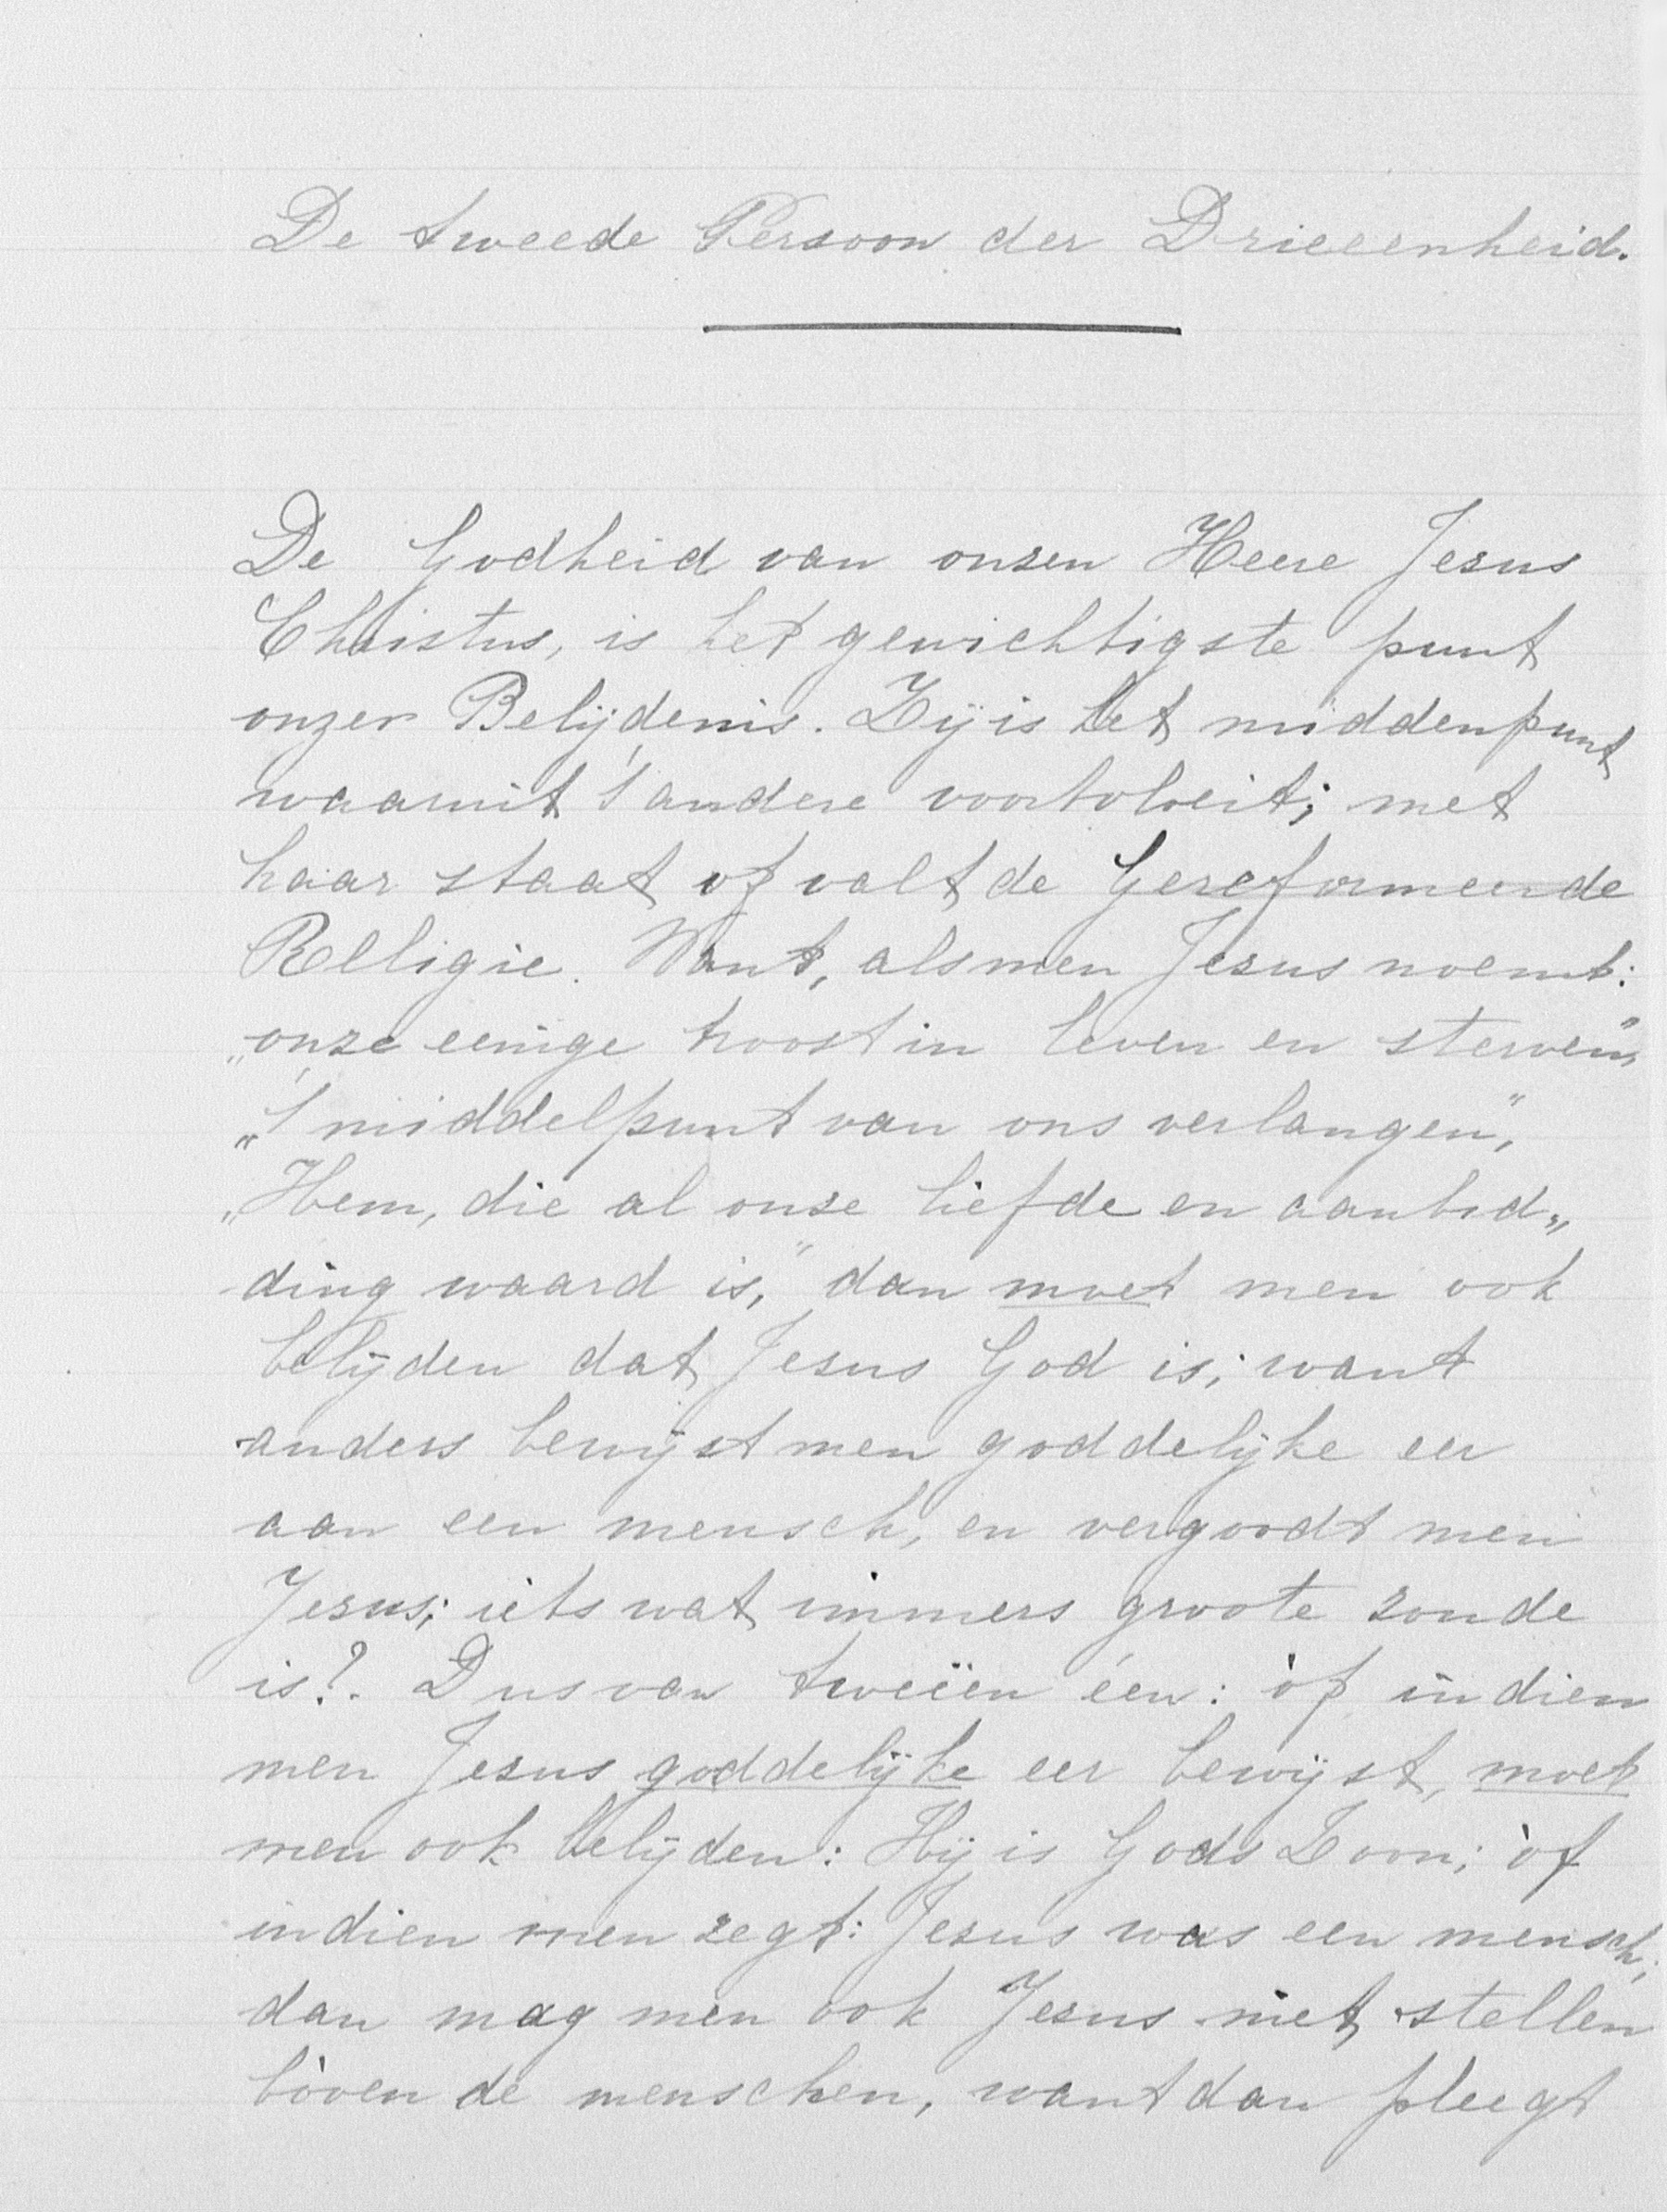 De tweede Persoon der Drieeenheid.
De Godheid van onzen Heere Jezus
Christus, is het gewichtigste punt
onzer Belijdenis. Zij is het middenpunt
waaruit 't andere voortvloeit; met
haar staat of valt de Gereformeerde
Relligie. Want, als men Jezus noemt:
„onze eenige troost in leven en sterven",
„'t middelpunt van ons verlangen",
„Hem, die al onze liefde en aanbid„
ding waard is," dan moet men ook
belijden dat Jezus God is; want
anders bewijst men goddelijke eer
aan een mensch, en vergoodt men
Jezus; iets wat immers groote zonde
is?. Dus van tweeën één: òf indien
men Jezus goddelijke eer bewijst, moet
men ook belijden: Hij is Gods Zoon; òf
indien men zegt: Jezus was een mensch;
dan mag men ook Jezus niet stellen
bòven de menschen, want dan pleegt